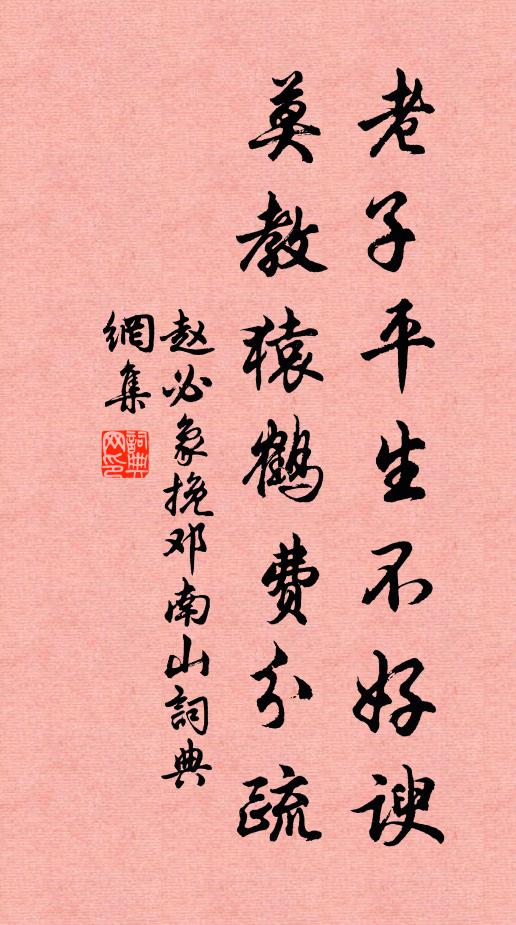 老子平生不好諛
莫教猿鶴費分疏
赵必象挽邓南山詞典
網集
詞典網印